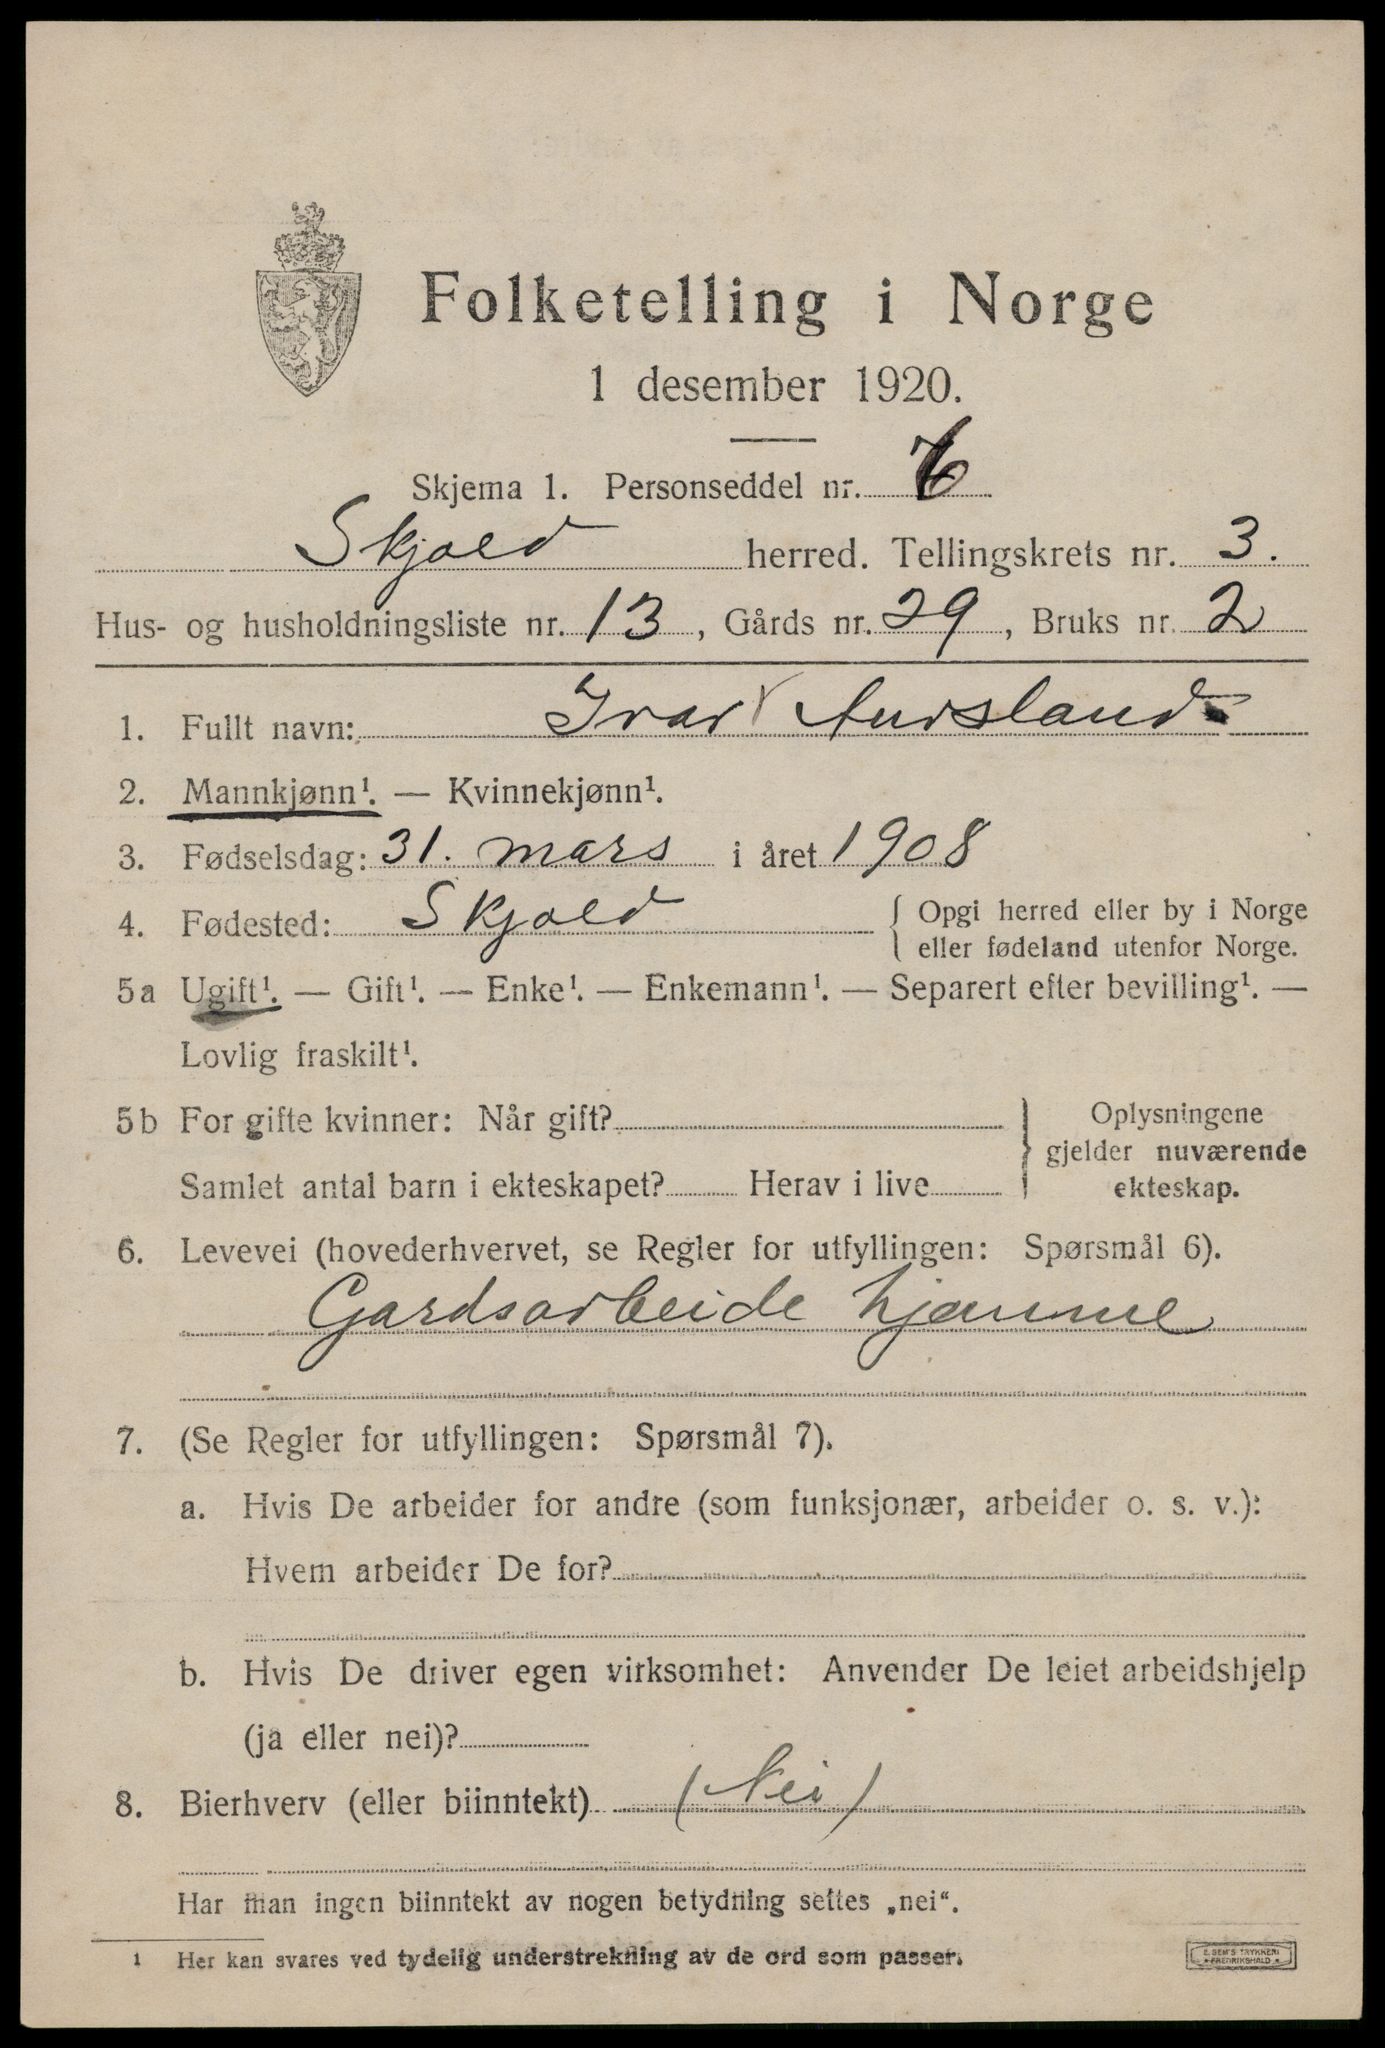 Folketelling i Norge
1 desember 1920.
Skjema 1. Personseddel nr. 6
Skjold herred. Tellingskrets nr. 3.
Hus- og husholdningsliste nr. 13, Gårds nr. 29, Bruks nr. 2
1. Fullt navn: Ivar Aursland
2. Mannkjønn¹. — Kvinnekjønn¹.
3. Fødselsdag: 31. mars i året 1908
4. Fødested: Skjold { Opgi herred eller by i Norge
eller fødeland utenfor Norge.
5a Ugift¹. — Gift¹. — Enke¹. — Enkemann¹. — Separert efter bevilling¹. —
Lovlig fraskilt¹.
5b For gifte kvinner: Når gift?
Samlet antal barn i ekteskapet? Herav i live
} Oplysningene
gjelder nuværende
ekteskap.
6. Levevei (hovederhvervet, se Regler for utfyllingen: Spørsmål 6).
Gardsarbeide hjemme
7. (Se Regler for utfyllingen: Spørsmål 7).
a. Hvis De arbeider for andre (som funksjonær, arbeider o. s. v.):
Hvem arbeider De for?
b. Hvis De driver egen virksomhet: Anvender De leiet arbeidshjelp
(ja eller nei)?
8. Bierhverv (eller biinntekt) (Nei)
Har man ingen biinntekt av nogen betydning settes „nei“.
1 Her kan svares ved tydelig understrekning av de ord som passer.
E. SEM'S TRYKKERI
FREDRIKSHALD